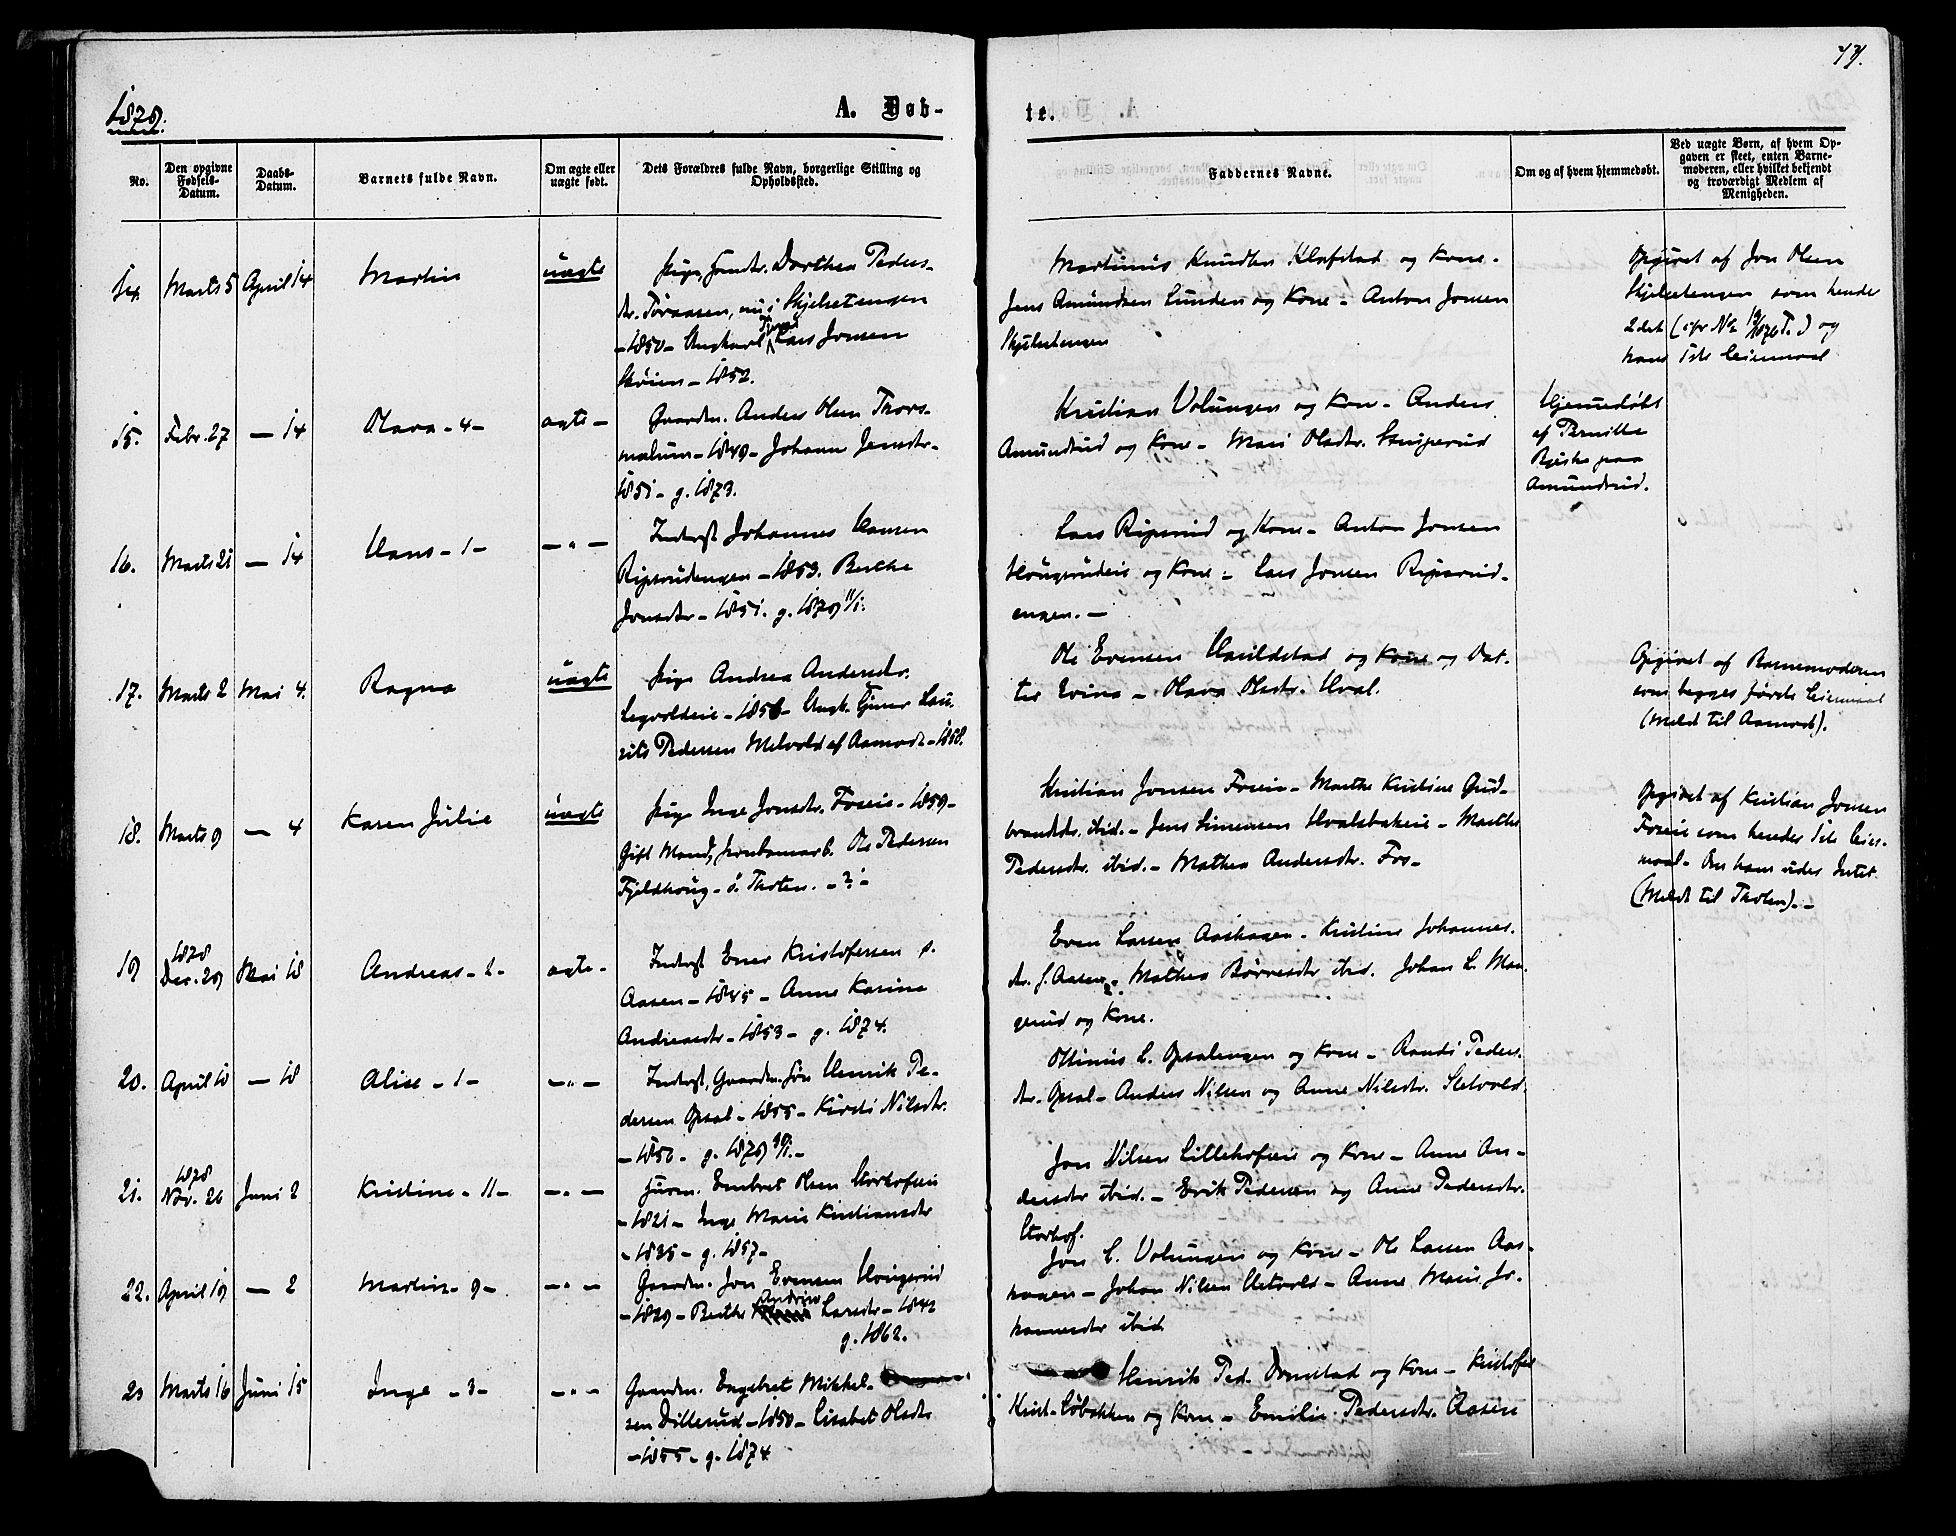 1879.
A. Døb-
te.
No.
Den opgivne
Fødsels-
Datum.
Daabs-
Datum.
Barnets fulde Navn.
Om ægte eller
uægte født.
Dets Forældres fulde Navn, borgerlige Stilling og
Opholdssted.
Faddernes Navne.
Om og af hvem hjemmedøbt.
Ved uægte Børn, af hvem Op-
gaven er skeet, enten Barne-
moderen, eller hvilket bekjendt
og troværdigt Medlem af
Menigheden.
14 Marts 5 April 14 Martin uægte
Pige, Dorthea Peders-
dr. nu i Skjelsetengen
- 1850 - Ungkarl Lars Jonsen
Skøien - 1852.
Martinius Knudsen Klafstad og Kone -
Jens Amundsen Lunden og Kone - Anton Jonsen
Skjelsetengen
Opgivet af Jon Olsen
Skjelsetengen som hendes
2det og
hans 1ste Leiermaal
15. Febr. 27 — 14 Olava - 4 - ægte -
Gaardm. Anders Olsen Thors-
mælum - 1849 - Johanne Jensdtr -
1851 - g. 1873.
Kristian Volungen og Kone - Anders
Amundrud og Kone - Mari Olsdtr.
Hjemmedøbt
af Pernille
paa
Amundrud.
16. Marts 21 — 14 Hans - 1 - — " —
Inderst Johannes Hansen
Ripsrudengen - 1853. Berthe
Jonsdtr - 1851. g. 1879 11/1.
Lars Ripsrud og Kone - Anton Jonsen
Hougsrudeie og Kone - Lars Jonsen Ripsrud-
engen. —
17. Marts 2 Mai 4. Ragna uægte
Pige Andrea Andersdtr.
- 1856 - Ungk. Tjener Lau-
rits Pedersen Melvold af Aamodt - 1858.
Ole Evensen Havildstad og Kone og Dat-
ter Evine - Olava Olsdtr. Hval.
Opgivet af Barnemoderen
som begges første Leiermaal
(Meldt til Aamodt).
18. Marts 9 — 4 Karen Julie uægte
Pige Inge Jonsdtr. Fosseie - 1859 -
Gift Mand, Jernbanearb. Ole Pedersen
Fjeldhoug - ø. Thoten. - ? -
Kristian Jonsen Fosseie - Marthe Kristine Gud-
brandsdtr. ibid. - Jens Simensen Hvalsbakeie - Marthe
Pedersdtr. ibid. - Mathea Andersdtr. Fos -
Opgivet af Kristian Jonsen
Fosseie som hendes 1ste Leier-
maal - Om ham vides Intet
(Meldt til Thoten). -
19 1878 Dec. 29 Mai 18 Andreas - 2 - ægte -
Inderst Ener Kristofersen s.
Aasen - 1845 - Anne Karine
Andreasdtr - 1853 - g. 1874.
Even Larsen Aashagen - Kristine Johannes-
dtr. s. Aasen - Mathea Børresdtr ibid. Johan L. Man-
gerud og Kone.
20. April 10 — 18 Alise - 1 - — " —
Inderst, Gaardm. Søn Henrik Pe-
dersen Opsal - 1855 - Kirsti Nilsdtr.
- 1850 - g. 1879
Ottinius L. Opsalengen og Kone - Randi Peders-
dtr. Opsal - Anders Nilsen og Anne Nilsdtr. Sletvold.
21. 1878 Nov. 26 Juni 2 Kristine - 11 - — " —
Embret Olsen Storhofeie
- 1821 - Inge Marie Kristiansdtr
- 1835 - g. 1857 -
Jon Nilsen Lillehofeie og Kone - Anne An-
dersdtr ibid. - Erik Pedersen og Anne Pedersdtr.
Storhof.
22. April 19 — 2 Martin - 9 - — " —
Gaardm. Jon Evensen Hougsrud
- 1829 - Berthe Andrine Larsdtr - 1842
g. 1862.
Jon C. Volungen og Kone - Ole Larsen Aas-
hagen - Johan Nilsen Sletvold - Anne Marie Jo-
hannesdtr ibid.
23 Marts 16 Juni 15 Inge - 3 - — " —
Gaardm. Engebret Mikkel-
sen Dillerud - 1850 - Lisabet Olsdtr
- 1855 - g. 1874
Henrik Ped. Ornestad og Kone - Kristofer
Krist. Løbakken og Kone - Emilie Pedersdtr. Aasen